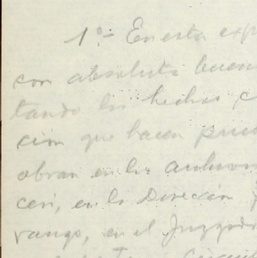 1º- En esta exp
con absoluta buena
tando los hechos c
ción que hacen
obran en los
ces, en la Dirección
rango, en el Juzgado